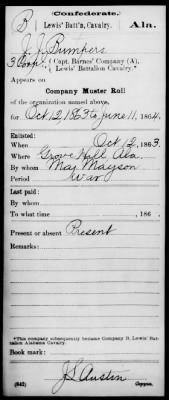 (Confederate.)
B Lewis' Batt'n, Cavalry. Ala.
J. J. Bumpers
3 Corp', Capt. Barnes' Company (A),
Lewis' Battalion Cavalry.*
Appears on
Company Muster Roll
of the organization named above,
for Oct 12, 1863 to June 11, 1864.
Enlisted:
When Oct 12, 1863.
Where Grove Hill Ala.
By whom Maj Mayson
Period War
Last paid:
By whom
To what time , 186 .
Present or absent Present
Remarks:
*This company subsequently became Company B, Lewis' Battalion Alabama Cavalry.
Book mark:
J S Austin
(642) Copyist.